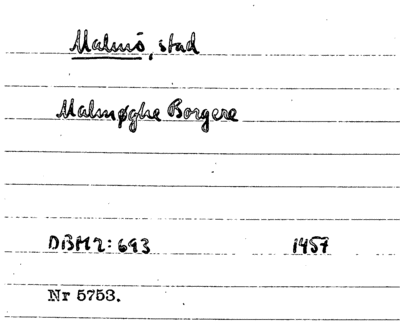 Malmö, stad
Malmøghe Borgere
DBM 2:693 1457
Nr 5753.